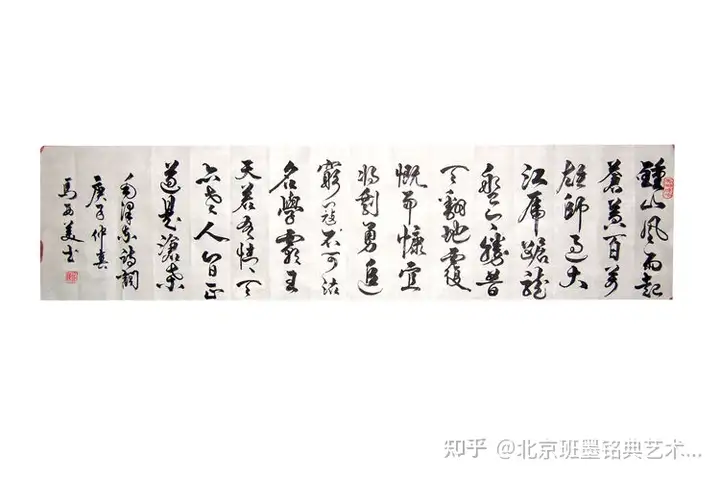 鍾山風雨起
蒼黃百萬
雄師過大
江虎踞龍
盤今勝昔
天翻地覆
慨而慷宜
將剩勇追
窮寇不可沽
名學霸王
天若有情天
亦老人間正
道是滄桑
毛澤東詩詞
庚子仲春
馬美书
知乎 @北京班墨铭典艺术...